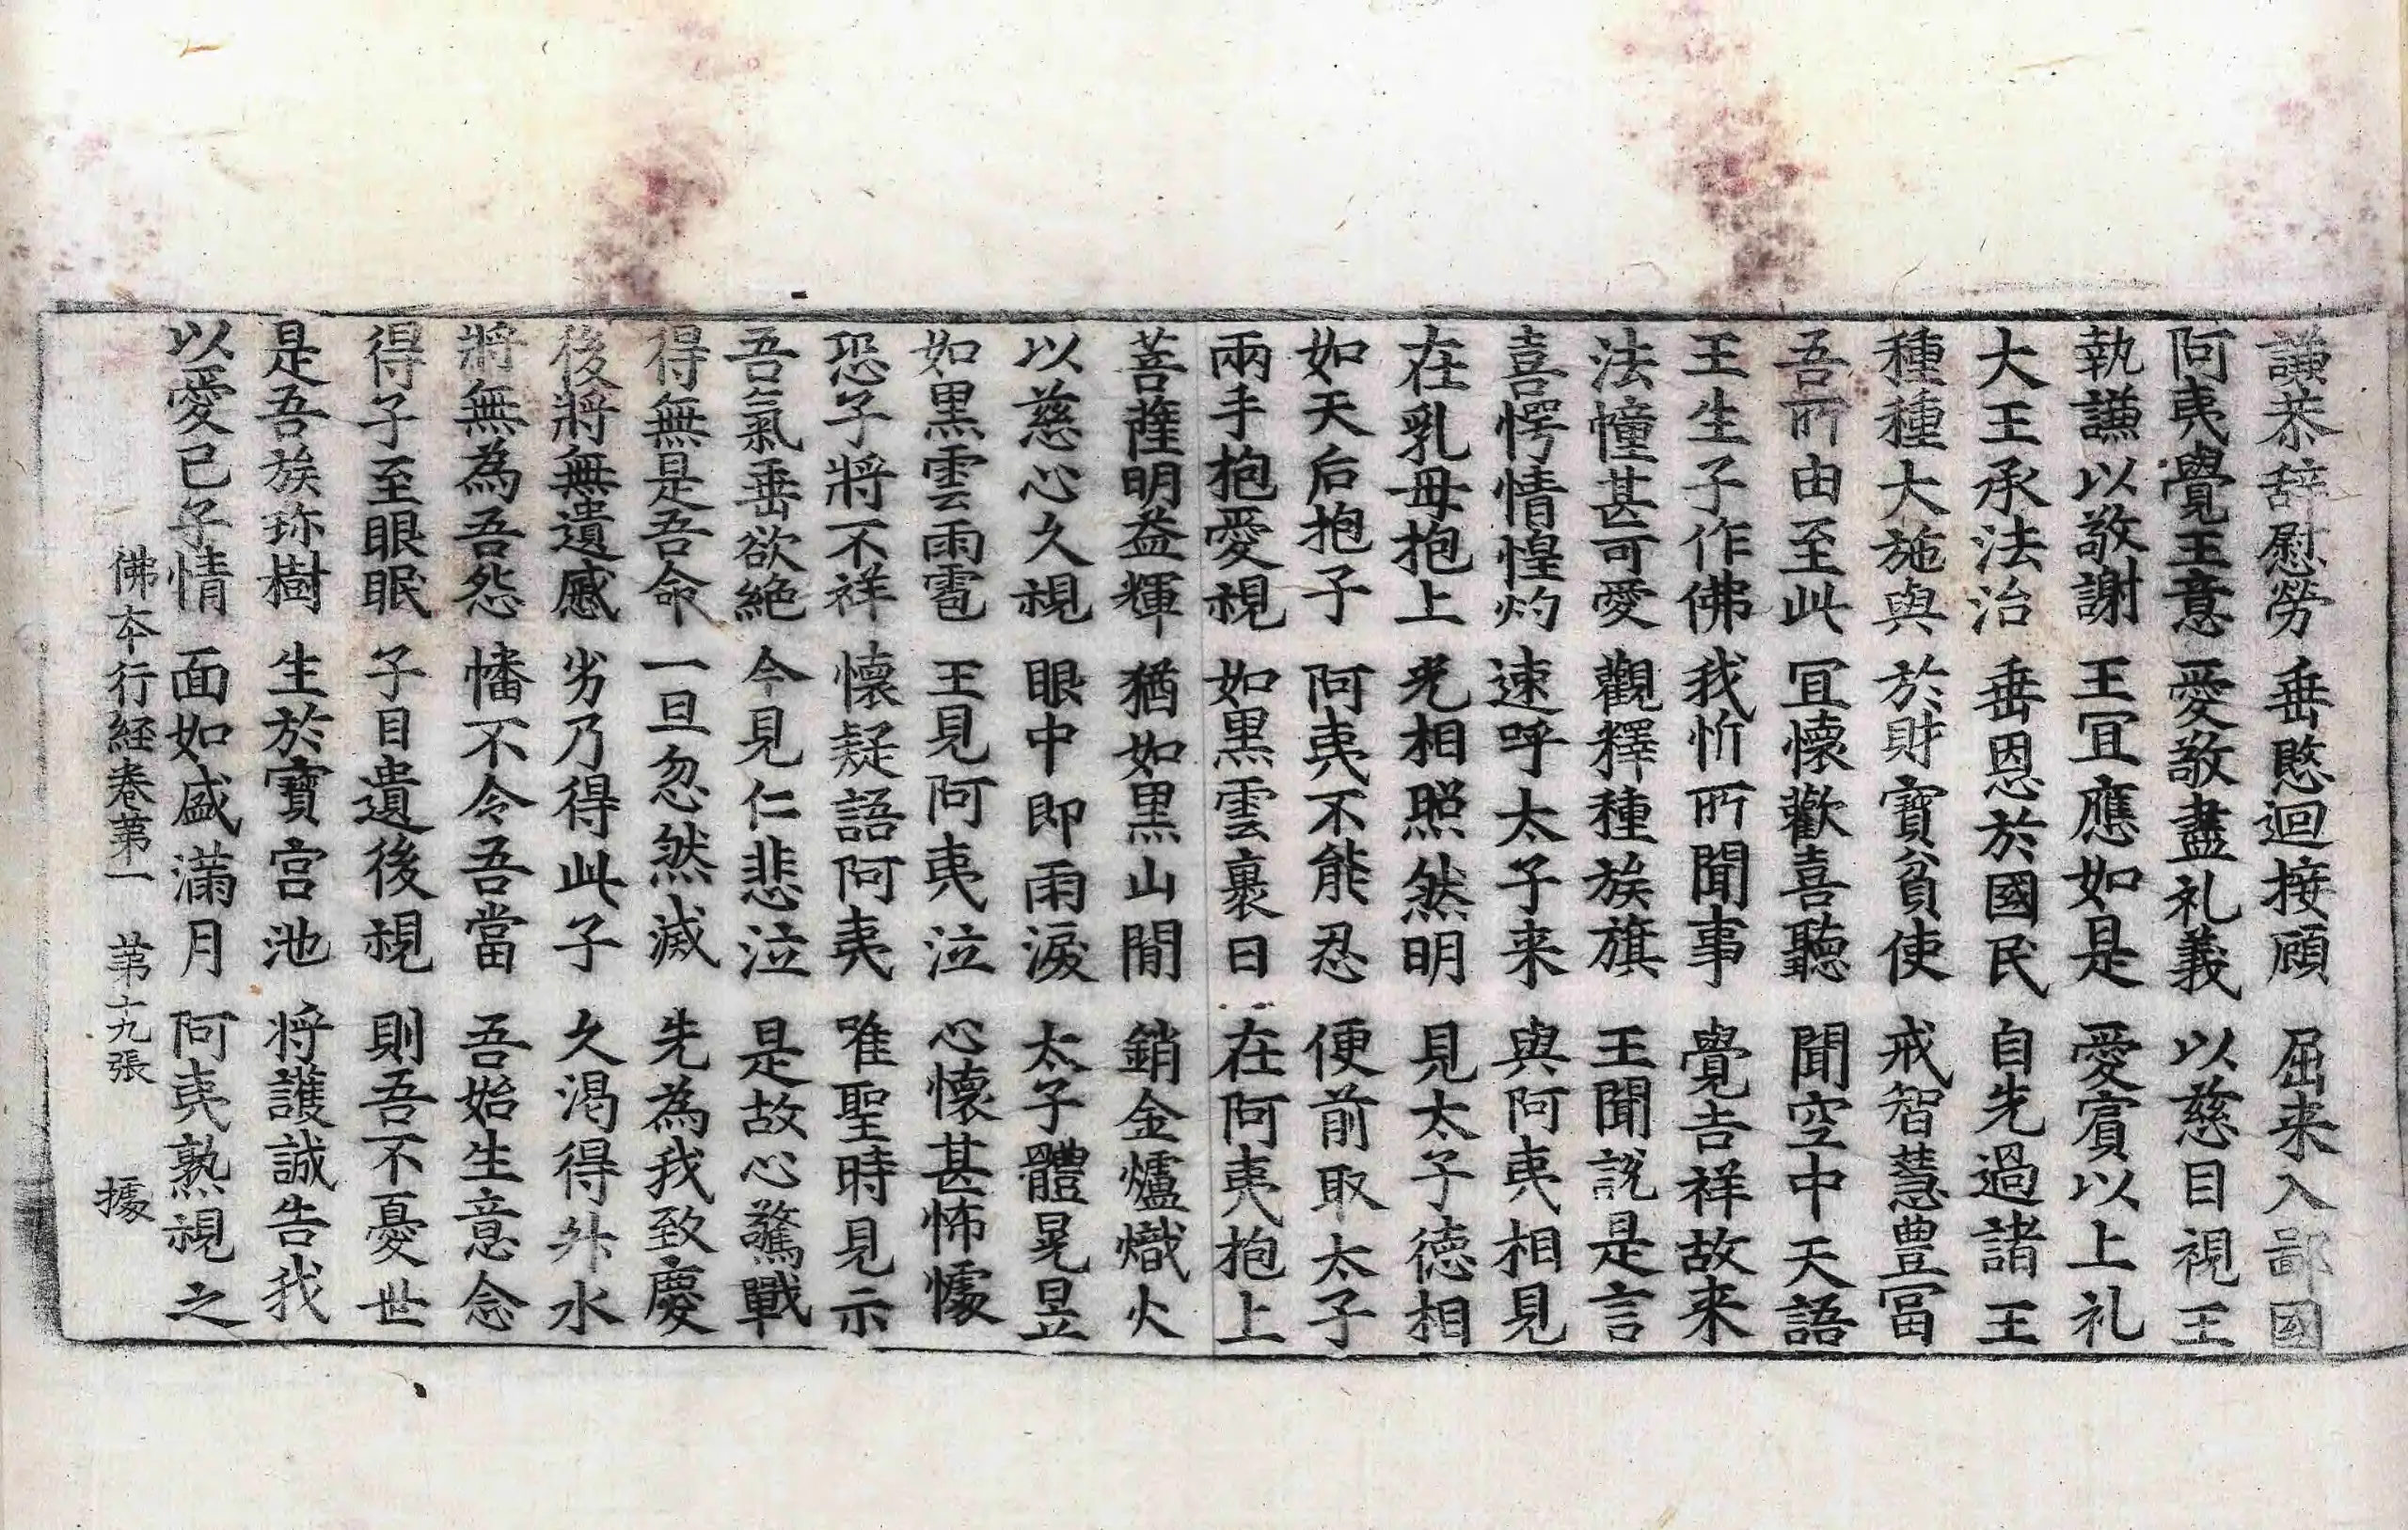 謙恭辞慰勞 垂愍迴接顧 屈来入鄙國
阿夷覺王意 愛敬盡礼義 以慈目視王
執謙以敬謝 王冝應如是 愛賓以上礼
大王承法治 垂恩於國民 自先過諸王
種種大施與 於財寶貧使 戒智慧豊冨
吾所由至此 冝懷歡喜聽 聞空中天語
王生子作佛 我忻所聞事 覺吉祥故来
法幢甚可愛 觀釋種族旗 王聞説是言
喜愕情惶灼 速呼太子来 與阿夷相見
在乳母抱上 光相照然明 見太子德相
如天后抱子 阿夷不能忍 便前取太子
兩手抱愛視 如黒雲裹日 在阿夷抱上
菩薩明益輝 猶如黒山間 銷金爐熾火
以慈心久視 眼中即雨淚 太子體晃昱
如黒雲雨雹 王見阿夷泣 心懷甚怖懅
恐子將不祥 懷疑語阿夷 唯聖時見示
吾氣垂欲絶 今見仁悲泣 是故心驚戰
得無是吾命 一旦忽然滅 先為我致慶
後將無遺慼 劣乃得此子 久渇得升水
將無為吾怨 幡不令吾當 吾始生意念
得子至眼眠 子目遺後視 則吾不憂世
是吾族珎樹 生於寶宫池 将護誠告我
以愛已子情 面如盛滿月 阿夷熟視之
佛本行経卷苐一 苐十九張 據